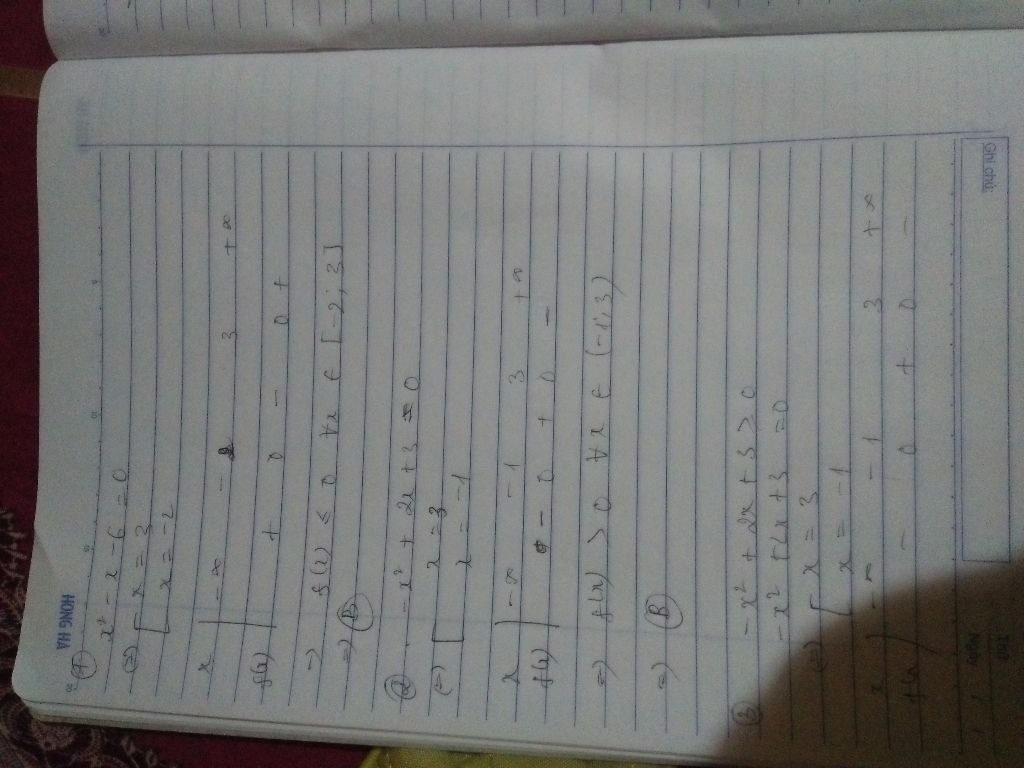 HONG HA
① x² - x - 6 = 0
(=) [ x = 3
x = -2
x | -∞ -2 3 +∞
f(x) | + 0 - 0 +
=) f(x) ≤ 0 ∀x ∈ [-2; 3]
=) Ⓑ
② -x² + 2x + 3 = 0
(=) [ x = 3
x = -1
x | -∞ -1 3 +∞
f(x) | - 0 + 0 -
=) f(x) > 0 ∀x ∈ (-1; 3)
=) Ⓑ
③ -x² + 2x + 3 > 0
-x² + 2x + 3 = 0
(=) [ x = 3
x = -1
x | -∞ -1 3 +∞
f(x) | - 0 + 0 -
Thứ
Ngày
Ghi chú: